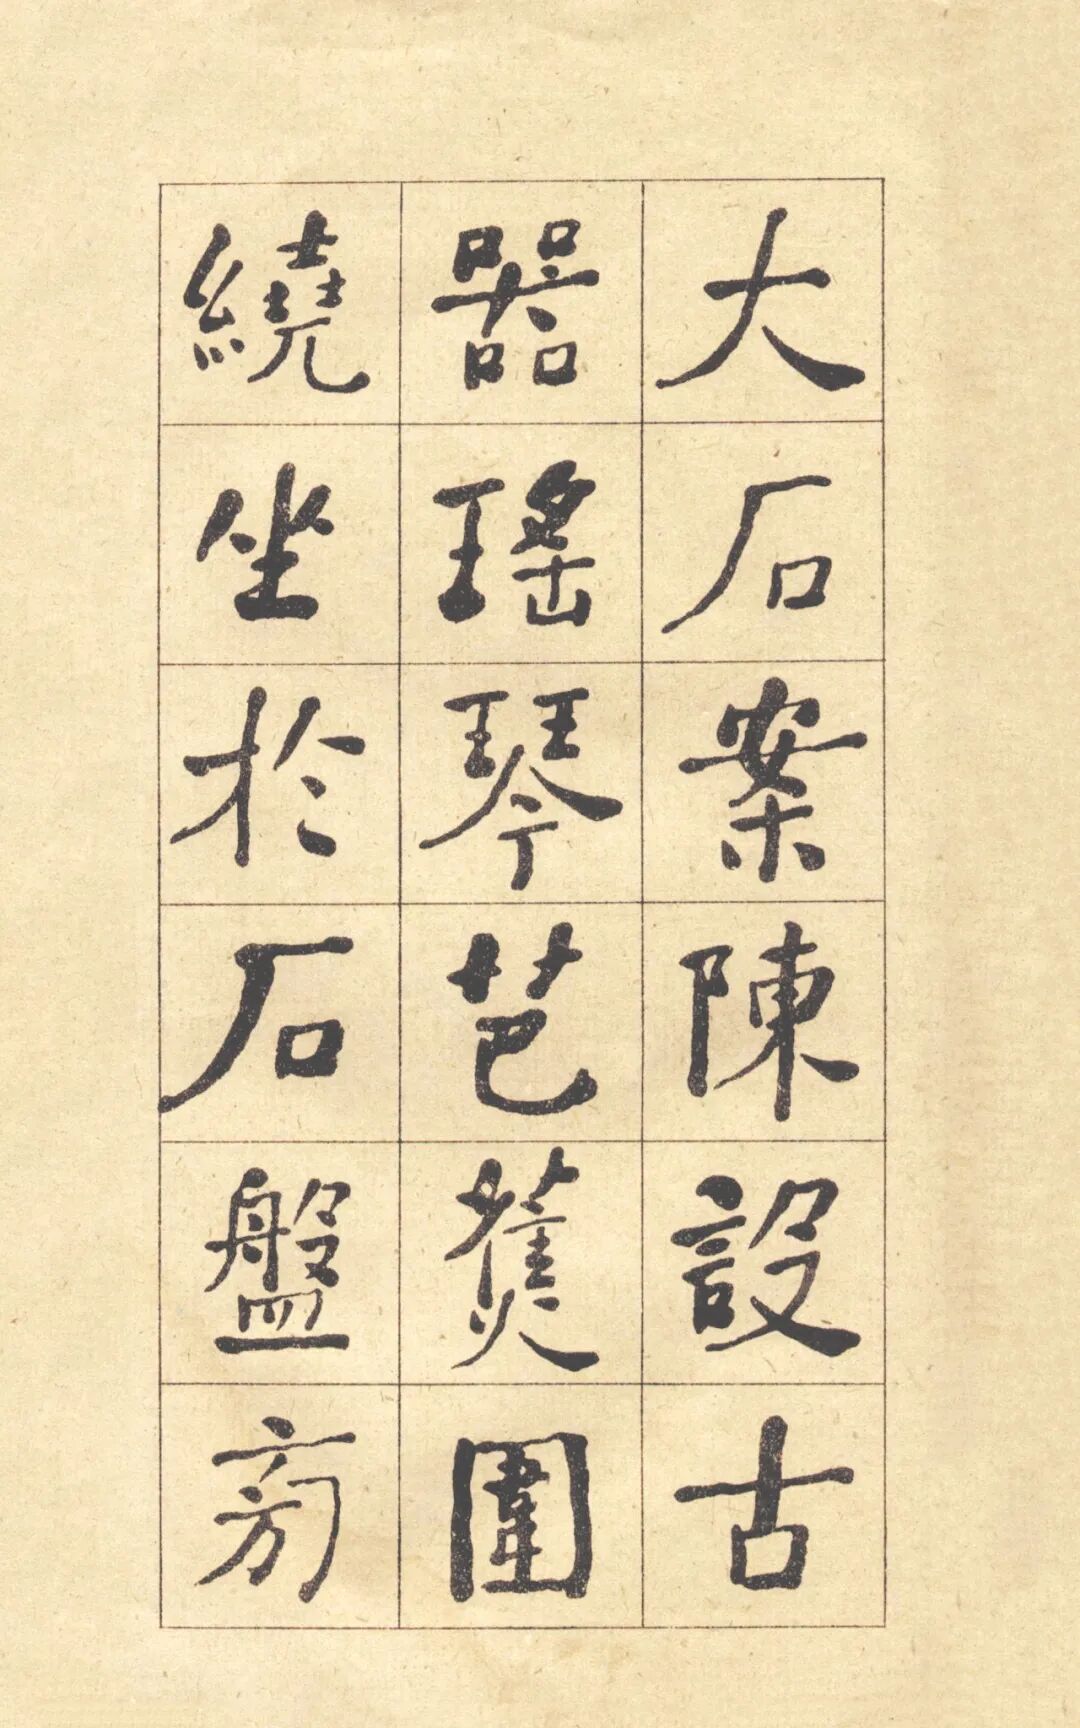 大石案陳設古
器瑤琴芭蕉圍
繞坐於石盤旁